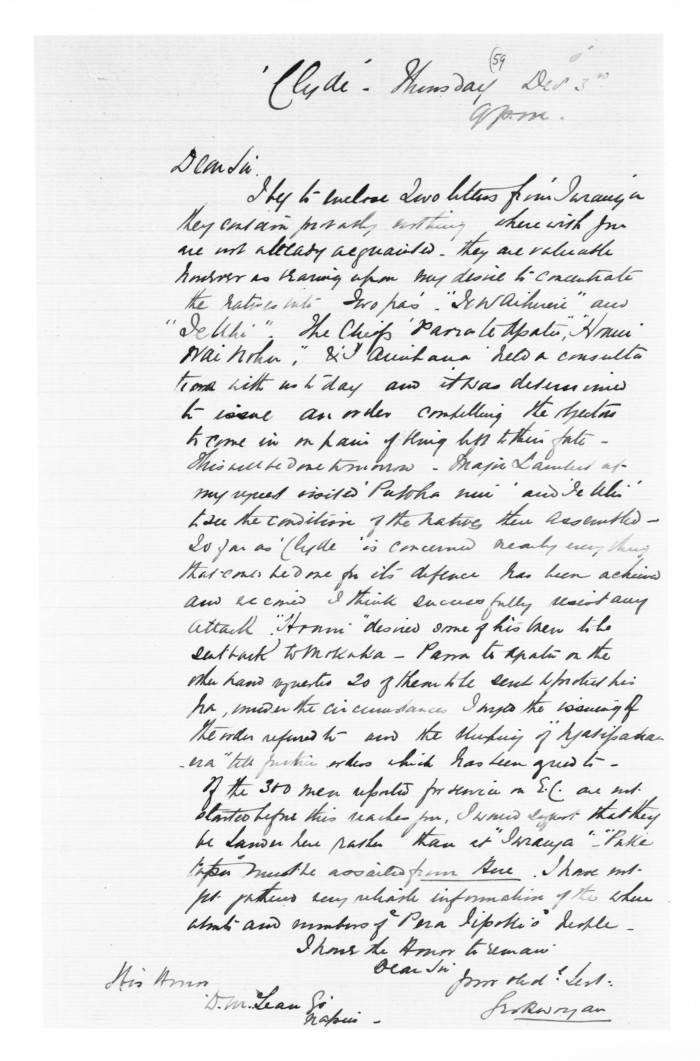 59
'Clyde' - Thursday Dec 3rd
9 p.m.
Dear Sir
I beg to enclose two letters from Turanga
they contain probably nothing wherewith you
are not already acquainted - they are valuable
however as bearing upon my desire to concentrate
the natives into two pas. "Te Waihirere" and
"Te Uhi". The Chiefs 'Paora te Apatu', 'Hami
held a consulta
tion with us to day and it was determined
to issue an order compelling the
to come in on pain of being left to their fate -
This will be done tomorrow - Major Lambert at
my request visited and 'Te Uhi'
to see the condition of the natives there assembled -
So far as 'Clyde' is concerned nearly every thing
that could be done for its defence has been achieved
and we could I think successfully resist any
attack. desired some of his men to be
sent back to Mohaka - Paora te Apatu on the
other hand requests 20 of them to be sent to protect his
Pa, under the circumstances I urged the issuing of
the order referred to and the keeping of
till further orders which has been agreed to -
If the 300 men reported for service on E.C. are not
started before this reaches you, I would suggest that they
be landed here rather than at "Turanga" -
must be assailed from Here. I have not
yet gathered very reliable information of the where
abouts and numbers of people -
I have the Honor to remain
Dear Sir
Your obedt. Servt.
His Honor
D. McLean Esq
Napier -